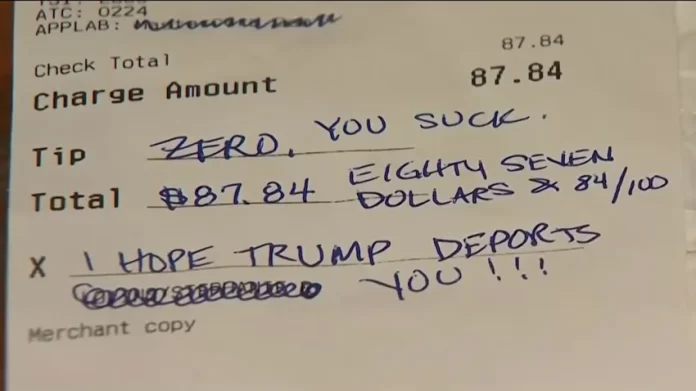 ATC: 0224
APPLAB:
87.84
Check Total
Charge Amount 87.84
Tip ZERO, YOU SUCK.
Total $87.84 EIGHTY SEVEN
DOLLARS & 84/100
X I HOPE TRUMP DEPORTS
YOU!!!
Merchant copy